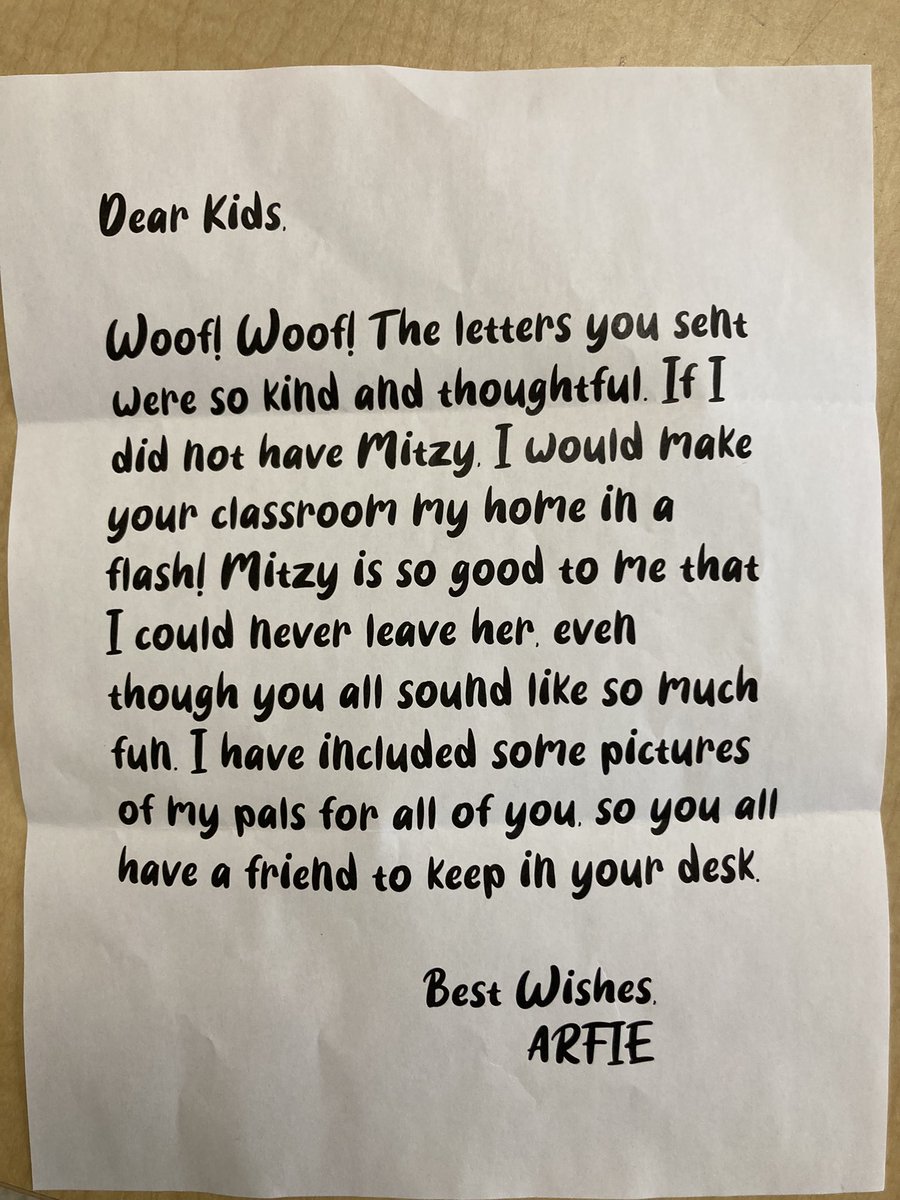 Dear Kids,
Woof! Woof! The letters you sent
were so kind and thoughtful. If I
did not have Mitzy, I would make
your classroom my home in a
flash! Mitzy is so good to me that
I could never leave her, even
though you all sound like so much
fun. I have included some pictures
of my pals for all of you, so you all
have a friend to keep in your desk.
Best Wishes,
ARFIE